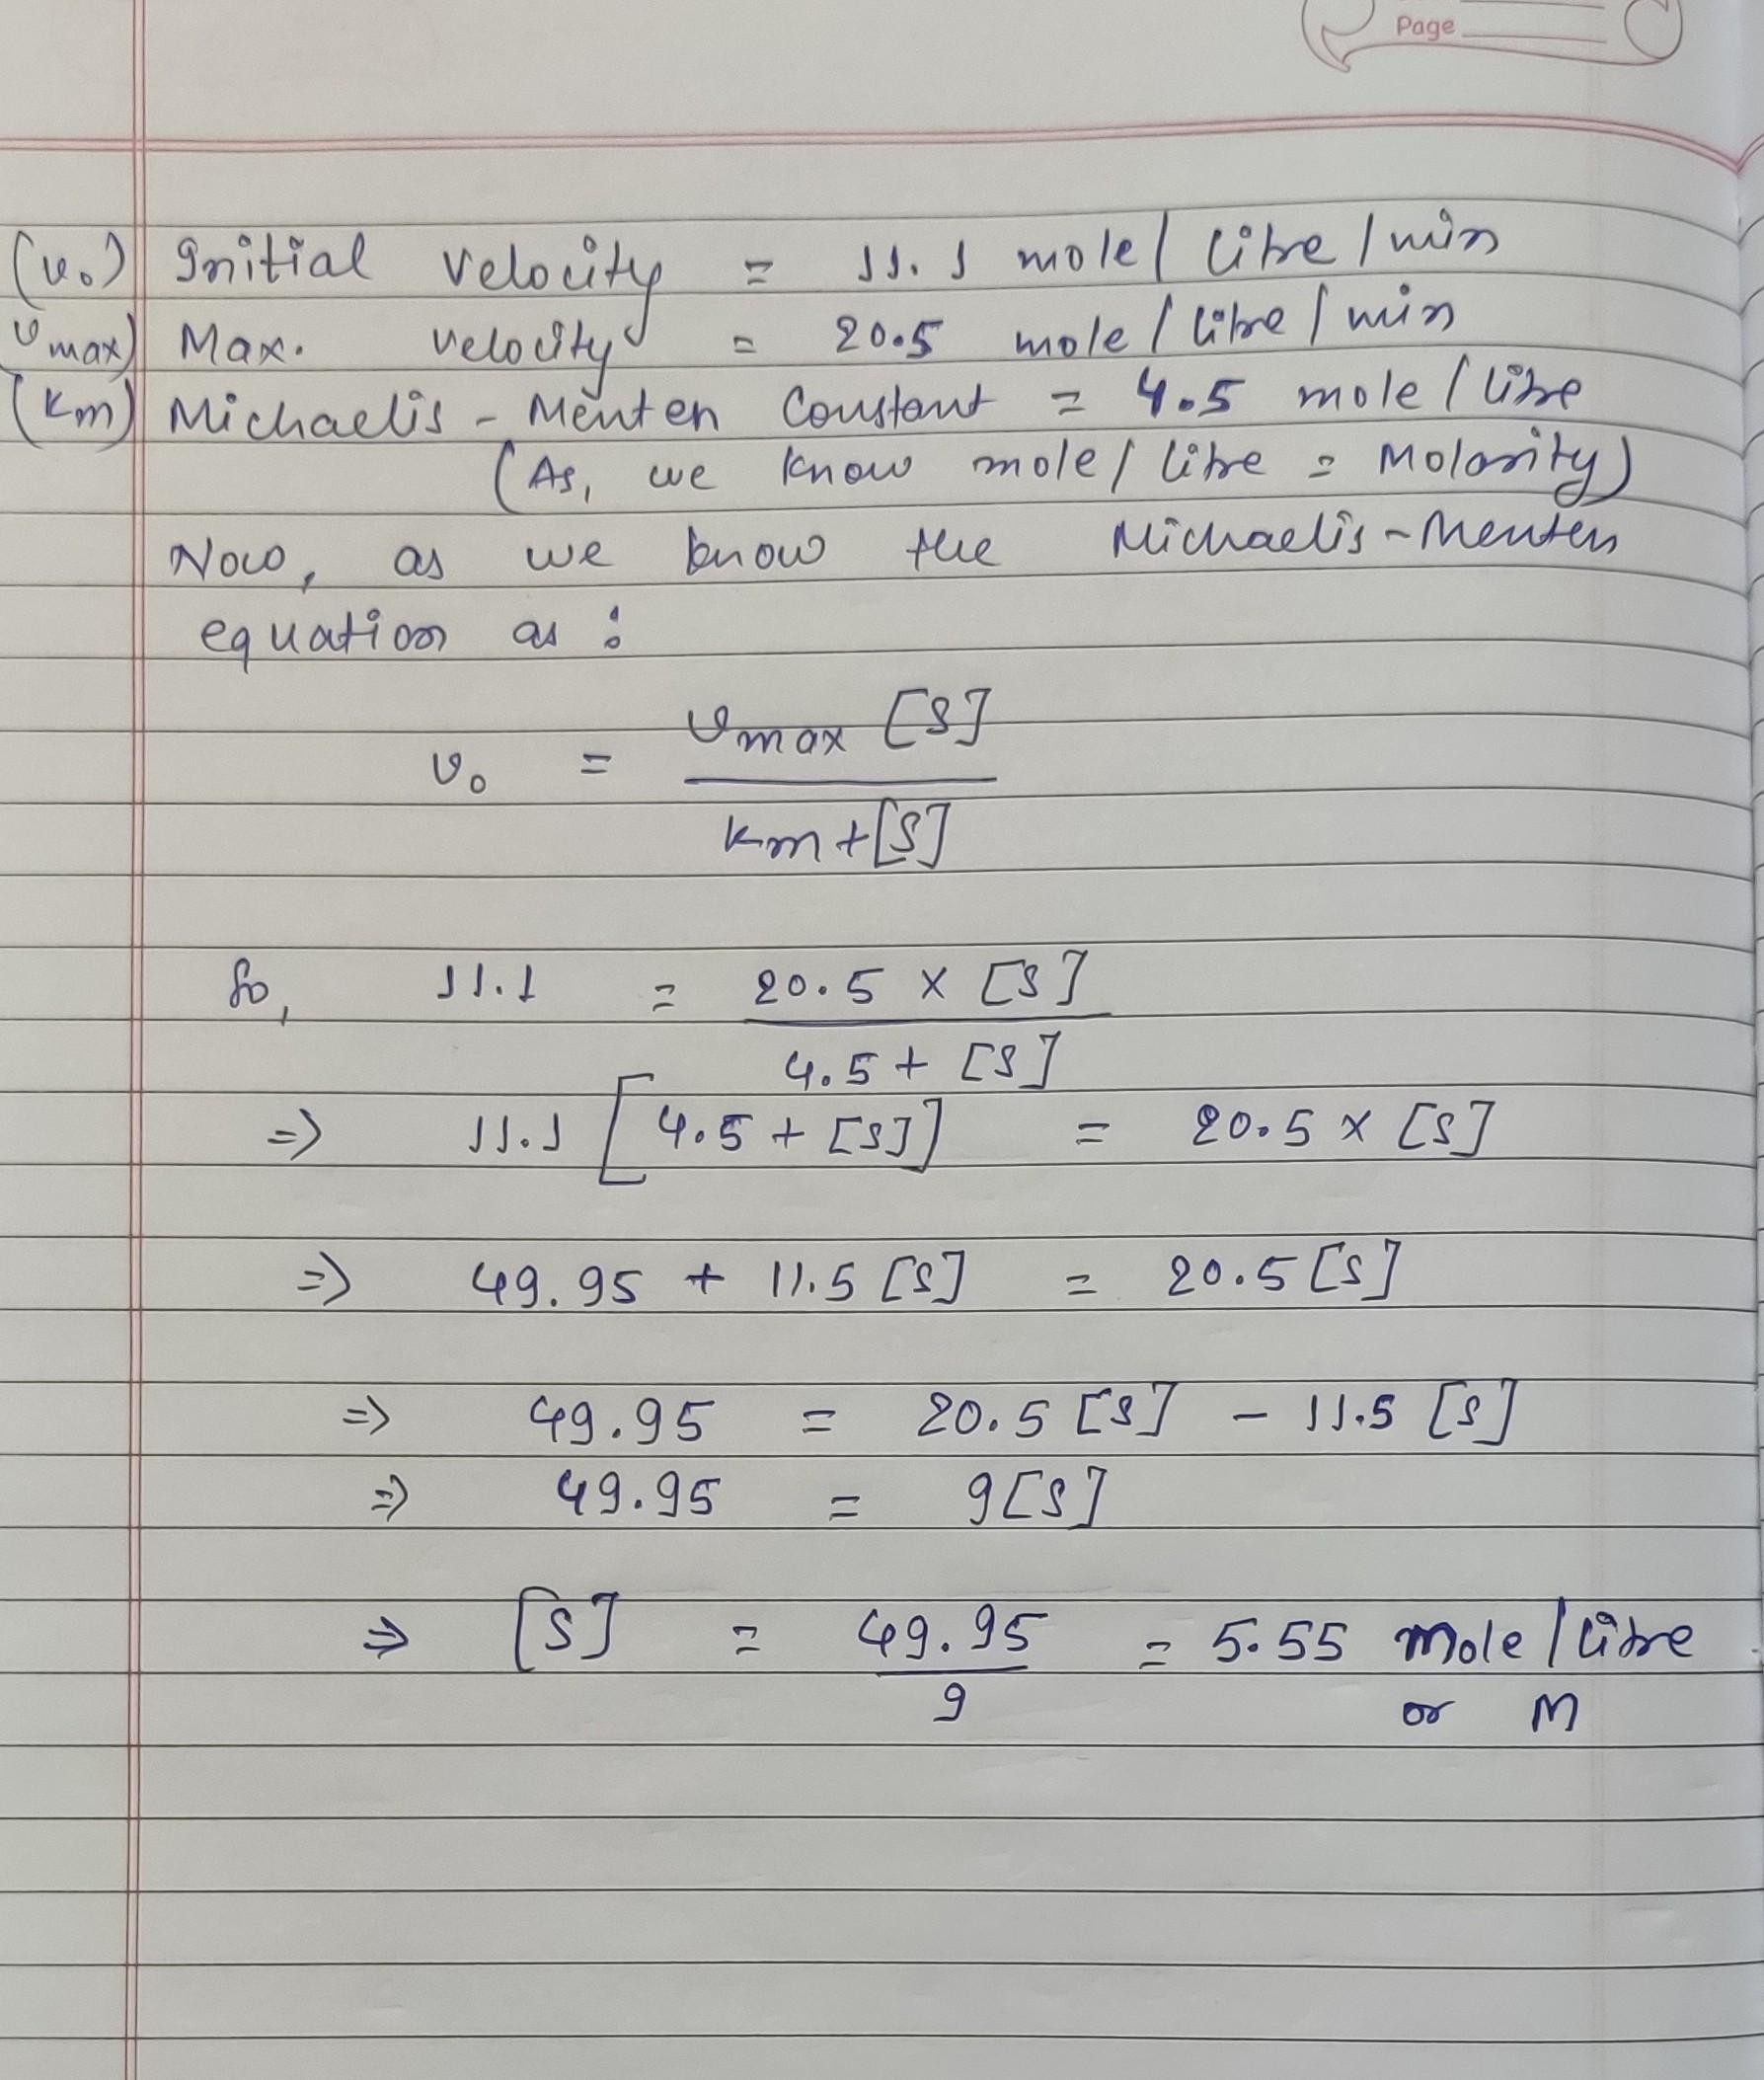 Page
(v₀) Initial velocity = 11.1 mole / litre / min
vmax) Max. velocity = 20.5 mole / litre / min
(Km) Michaelis - Menten Constant = 4.5 mole / litre
(As, we know mole / litre = Molarity)
Now, as we know the Michaelis - Menten
equation as :
v₀ = vmax [S] / Km + [S]
So, 11.1 = 20.5 × [S] / 4.5 + [S]
⇒ 11.1 [4.5 + [S]] = 20.5 × [S]
⇒ 49.95 + 11.5 [S] = 20.5 [S]
⇒ 49.95 = 20.5 [S] - 11.5 [S]
⇒ 49.95 = 9 [S]
⇒ [S] = 49.95 / 9 = 5.55 mole / litre
or M